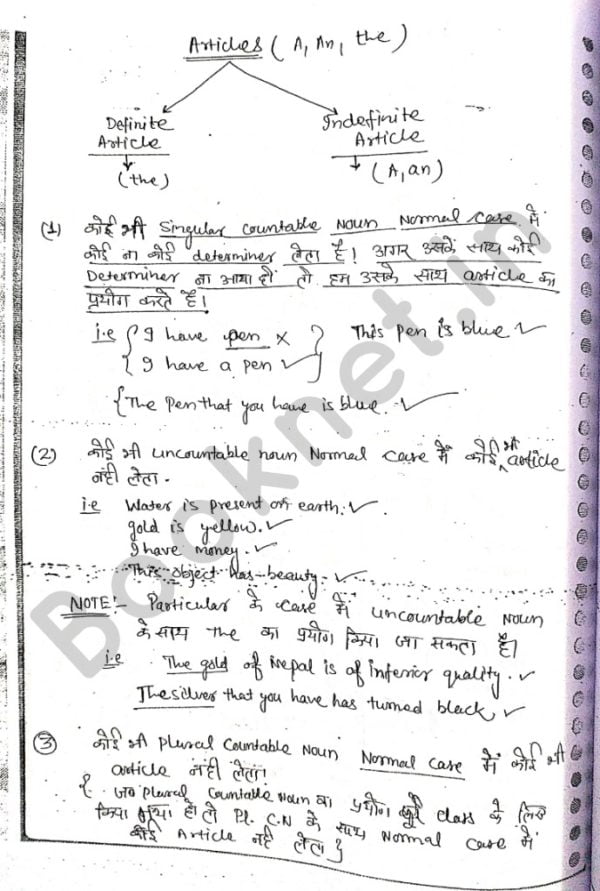 Articles (A, An, the)
Definite Article
(the)
Indefinite Article
(A, an)
(1) कोई भी Singular countable Noun Normal case में
कोई ना कोई determiner लेता है। अगर उसके साथ कोई
Determiner ना आया हो तो हम उसके साथ article का
प्रयोग करते हैं।
i.e { I have pen ×
{ I have a pen ✓ } This pen is blue ✓
{ The Pen that you have is blue. ✓
(2) कोई भी uncountable noun Normal case में कोई भी article
नहीं लेता.
i.e Water is present on earth. ✓
gold is yellow. ✓
I have money. ✓
This object has beauty. ✓
NOTE:- Particular के case में uncountable noun
के साथ the का प्रयोग किया जा सकता है।
i.e The gold of nepal is of inferior quality. ✓
The silver that you have has turned black ✓
(3) कोई भी plural countable noun Normal case में कोई भी
article नहीं लेता।
{ जब plural countable noun का प्रयोग पूरे class के लिए
किया गया हो तो Pl. C.N के साथ Normal case में
कोई Article नहीं लेता }
Booknet.in